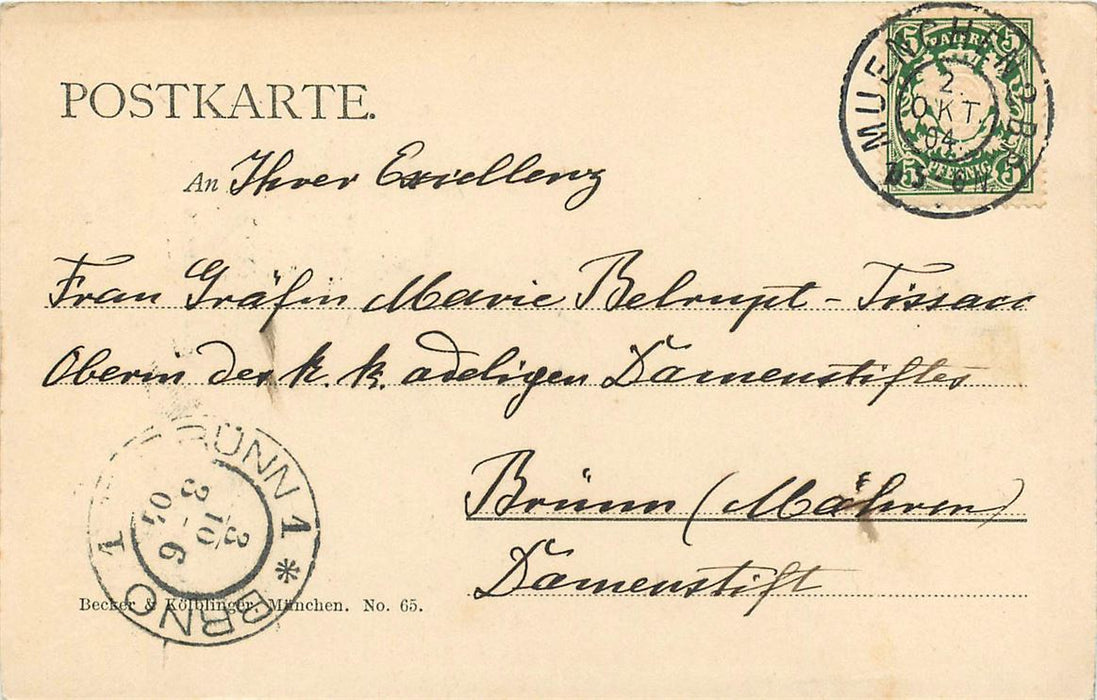 POSTKARTE.
MUENCHEN 2 B.P.
2.
OKT.
04.
BAYERN
5 5
PFENNIG
5 5
An Ihrer Excellenz
Frau Gräfin Marie Belrupt-Tissac
Oberin des k. k. adeligen Damenstiftes
Brünn (Mähren)
Damenstift
BRÜNN 1 * BRNO 1
3
10
04
Becker & Kölblinger, München. No. 65.